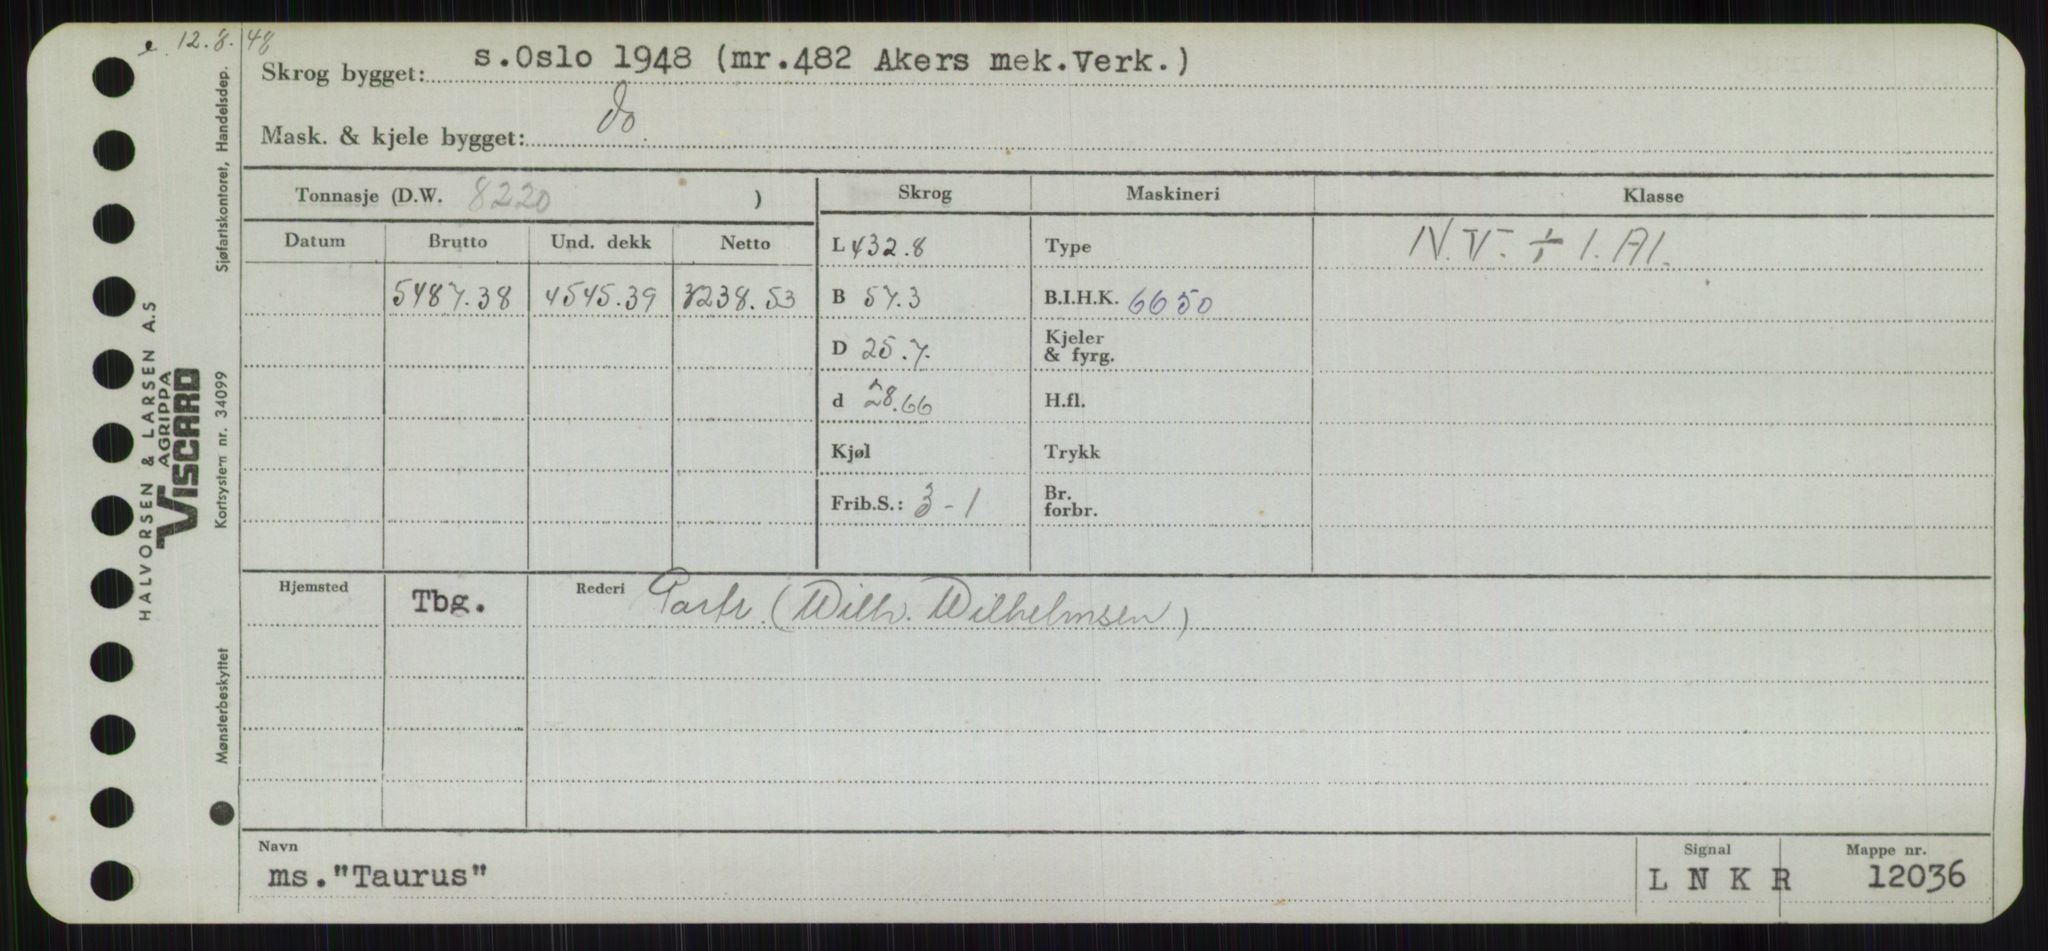 e. 12.8.48
Skrog bygget: s.Oslo 1948 (mr.482 Akers mek.Verk.)
Mask. & kjele bygget: do.
Tonnasje (D.W. 8220 )
Datum Brutto Und. dekk Netto
5487.38 4545.39 3238.53
Skrog Maskineri Klasse
L 432.8 Type N.V. ÷ 1.A1.
B 57.3 B.I.H.K. 6650
D 25.7. Kjeler & fyrg.
d 28.66 H.fl.
Kjøl Trykk
Frib.S.: 3-1 Br. forbr.
Hjemsted Tbg. Rederi Partr. (Wilh. Wilhelmsen)
Navn Signal Mappe nr.
ms."Taurus" L N K R 12036
HALVORSEN & LARSEN A.S
AGRIPPA
VISCARD
Mønsterbeskyttet Kortsystem nr. 34099 Sjøfartskontoret, Handelsdep.